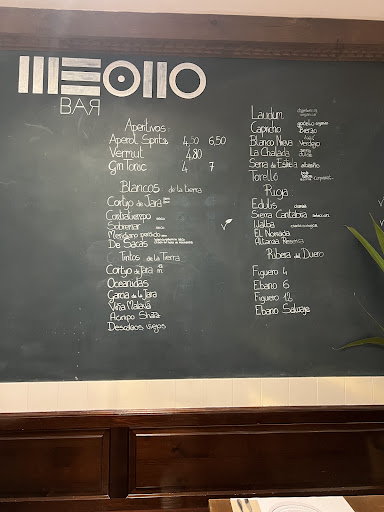 BAR
Aperitivos:
Aperol Spritz 4,50 6,50
Vermut 4,80
Gin Tonic 4 7
Blancos de la tierra
Cortijo de Jara
Contratiempo
Sobrenar
Meridiano perdido
De Sacas
Tintos de la Tierra
Cortijo de Jara
Oceanidas
Garcia de la Jara
Viña Matavía
Acinipo
Descalzos viejos
Laudum
Capricho Bierzo
Blanco Nieva Verdejo
La Chalada
Serra da Estrela albariño
Torelló
Rioja
Edulis
Sierra Cantabria
Ualba
El Nómada
Altanza Reserva
Ribera del Duero
Figuero 4
Ebano 6
Figuero 12
Ebano Salvaje